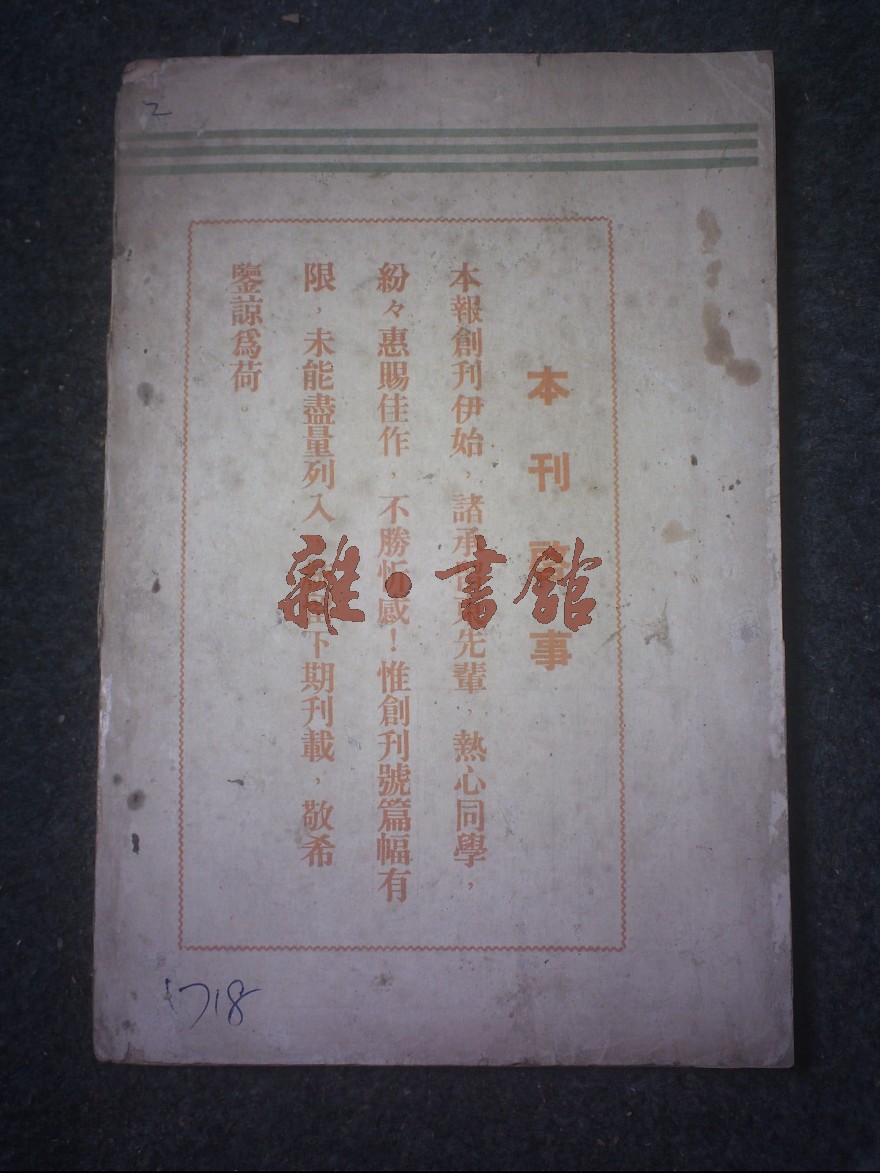 本刊啟事
本報創刊伊始，諸承先輩、熱心同學，
紛々惠賜佳作，不勝忻感！惟創刊號篇幅有
限，未能盡量列入下期刊載，敬希
鑒諒爲荷。
雜·書館
718